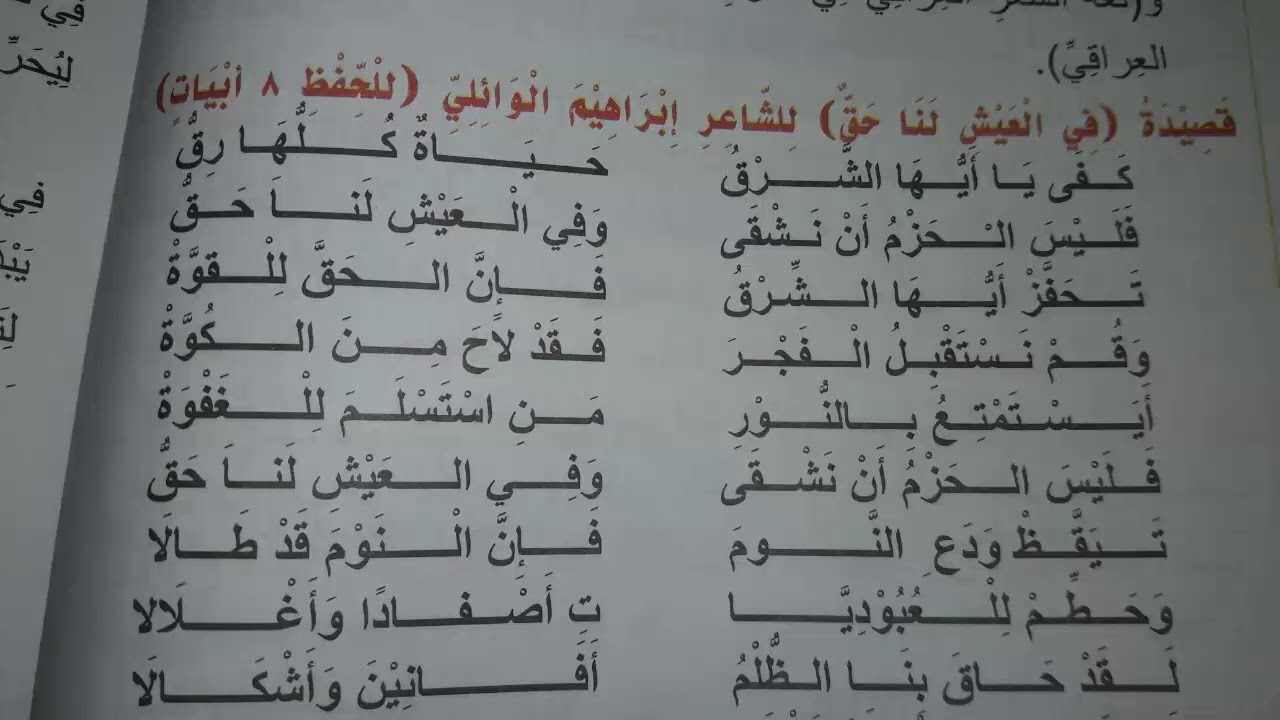 العِراقِيِّ).
قَصِيْدَةُ (فِي الْعَيْشِ لَنَا حَقٌّ) لِلشَّاعِرِ إِبْرَاهِيْمَ الْوَائِلِيِّ (لِلْحِفْظِ ٨ أَبْيَاتٍ)
كَفَى يَا أَيُّهَا الشَّرْقُ حَيَاةٌ كُلُّهَا رِقُّ
فَلَيْسَ الْحَزْمُ أَنْ نَشْقَى وَفِي الْعَيْشِ لَنَا حَقُّ
تَحَفَّزْ أَيُّهَا الشَّرْقُ فَإِنَّ الحَقَّ لِلْقوَّةْ
وَقُمْ نَسْتَقْبِلُ الْفَجْرَ فَقَدْ لاَحَ مِنَ الكُوَّةْ
أَيَسْتَمْتِعُ بِالنُّوْرِ مَنِ اسْتَسْلَمَ لِلْغَفْوَةْ
فَلَيْسَ الحَزْمُ أَنْ نَشْقَى وَفِي العَيْشِ لَنَا حَقُّ
تَيَقَّظْ وَدَعِ النَّومَ فَإِنَّ الْنَوْمَ قَدْ طَالَا
وَحَطِّمْ لِلْعُبُوْدِيَّا تِ أَصْفَادًا وَأَغْلَالا
لَقَدْ حَاقَ بِنَا الظُّلْمُ أَفَانِيْنَ وَأَشْكَالَا